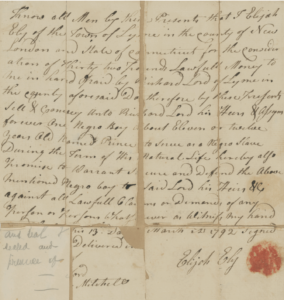 Know all Men by these Presents that I Elijah
Ely of the Town of Lyme in the county of New
London and State of Connecticut for the consid
eration of Thirty two Pound Lawfull Money to
me in hand Paid by Richard Lord of Lyme in
the county aforesaid Do therefore by these Presents
Sell & Convey Unto Richard Lord his Heirs &
forever One Negro Boy about Eleven or twelve
Years Old Named Prince to Serve as Negro Slave
During the Term of His Natural Life hereby also
Promise to Warrant Secure and Defend the Above
Mentioned Negro boy to Said Lord his Heirs &c
against all Lawfull Claims or Demands of any
Person or Persons What ever as Witness my hand
and Seal 13 day March 1792 Signed
Sealed and Delivered
Elijah Ely
Lord
Mitchel